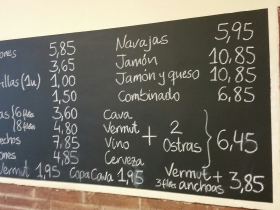 ones 5,85
3,65
illas (1u) 1,00
1,50
as) 6 filets 3,60
18 filets 4,80
echos 7,85
ones 4,85
Vermut 1,95 Copa Cava 1,95
Navajas 5,95
Jamón 10,85
Jamón y queso 10,85
Combinado 6,85
Cava
Vermut + 2
Vino Ostras } 6,45
Cerveza
Vermut +
3 filets anchoas 3,85